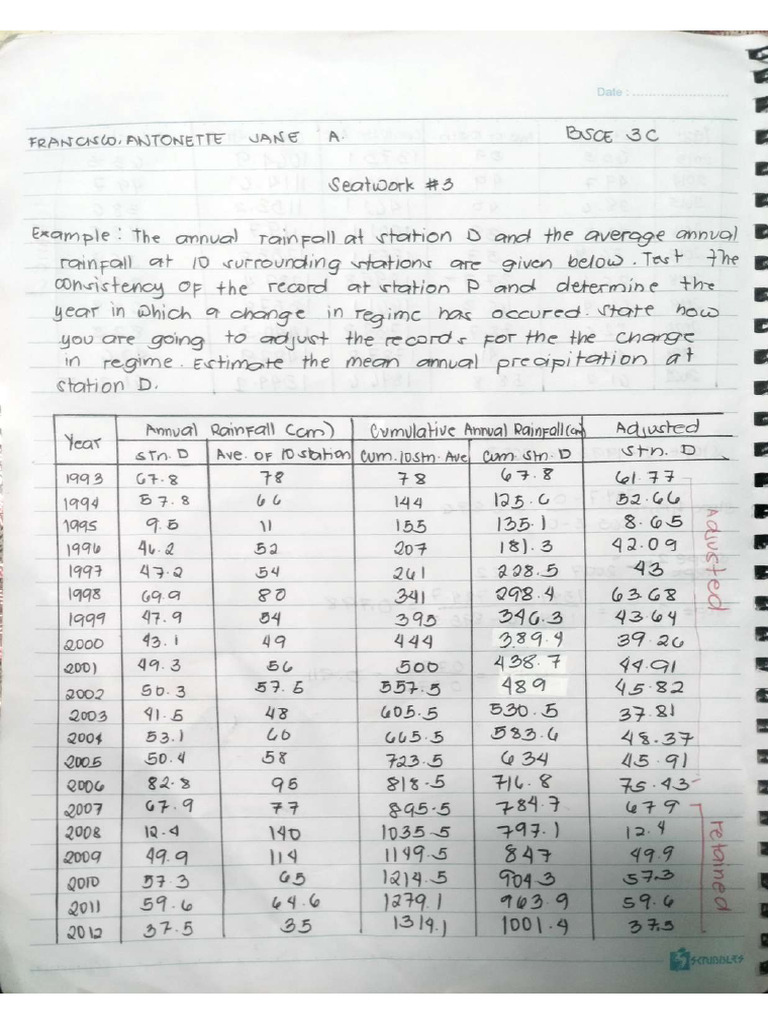 Date :
FRANCISCO, ANTONETTE JANE A. BSCE 3C
Seatwork #3
Example: The annual rainfall at station D and the average annual
rainfall at 10 surrounding stations are given below. Test the
consistency of the record at station D and determine the
year in which a change in regime has occured. State how
you are going to adjust the records for the the change
in regime. Estimate the mean annual precipitation at
station D.
Year Annual Rainfall (cm) Cumulative Annual Rainfall (cm) Adjusted
Stn. D Ave. of 10 station Cum. 10 stn. Ave Cum. Stn. D Stn. D
1993 67.8 78 78 67.8 61.77
1994 57.8 66 144 125.6 52.66
1995 9.5 11 155 135.1 8.65
1996 46.2 52 207 181.3 42.09
1997 47.2 54 261 228.5 43
1998 69.9 80 341 298.4 63.68
1999 47.9 54 395 346.3 43.64
2000 43.1 49 444 389.4 39.26
2001 49.3 56 500 438.7 44.91
2002 50.3 57.5 557.5 489 45.82
2003 41.5 48 605.5 530.5 37.81
2004 53.1 60 665.5 583.6 48.37
2005 50.4 58 723.5 634 45.91
2006 82.8 95 818.5 716.8 75.43
Adjusted
2007 67.9 77 895.5 784.7 679
2008 12.4 140 1035.5 797.1 12.4
2009 49.9 114 1149.5 847 49.9
2010 57.3 65 1214.5 904.3 57.3
2011 59.6 64.6 1279.1 963.9 59.6
2012 37.5 35 1314.1 1001.4 37.5
retained
SCRIBBLERS